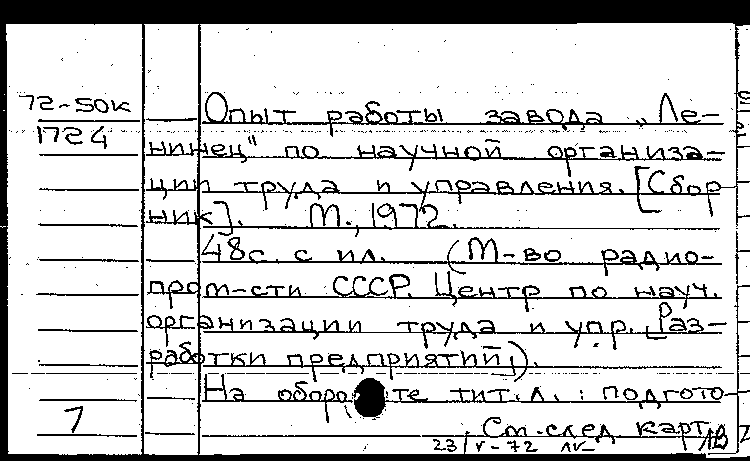 72-50к
1724
Опыт работы завода „Ле-
нинец" по научной организа-
ции труда и управления. [Сбор
ник]. М., 1972.
48с. с ил. (М-во радио-
пром-сти СССР. Центр по науч.
организации труда и упр. Раз-
работки предприятий,).
На обороте тит. л. : подгото
См. след карт.
7
23/V-72